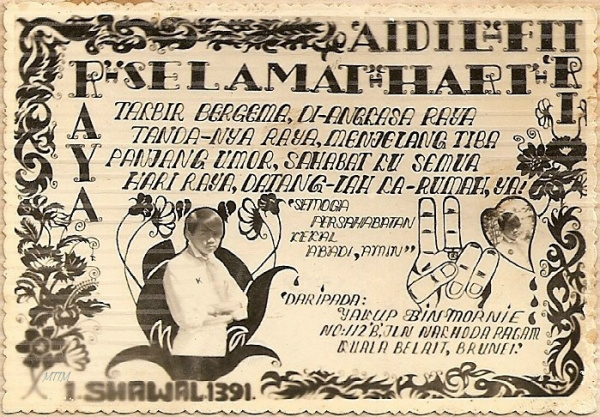 SELAMAT HARI
RAYA
AIDIL-FITRI
TAKBIR BERGEMA, DI-ANGKASA RAYA
TANDA-NYA RAYA, MENJELANG TIBA
PANJANG UMOR, SAHABAT KU SEMUA
HARI RAYA, DATANG-LAH KA-RUMAH, YA!
"SEMOGA
PERSAHABATAN
KEKAL
ABADI, "AMIN"
"DARIPADA:
YAKUP BIN MORNIE
NO:112'B', JLN NAKHODA RAGAM
KUALA BELAIT, BRUNEI."
MTTM
1. SHAWAL.1391.